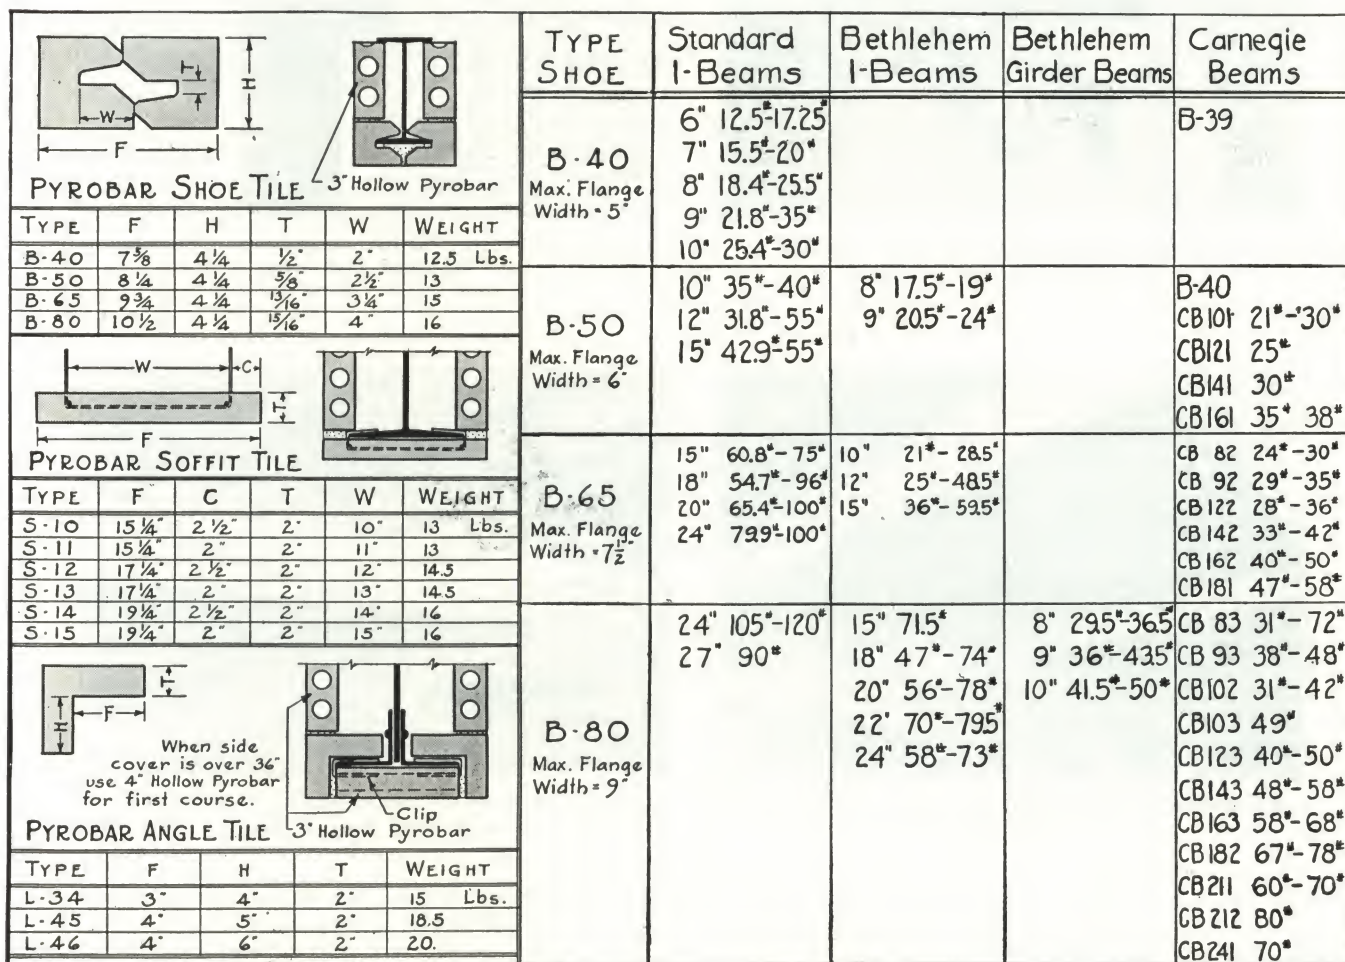 T
H
W
F
PYROBAR SHOE TILE
3" Hollow Pyrobar
TYPE F H T W WEIGHT
B-40 7 5/8 4 1/4 1/2" 2" 12.5 Lbs.
B-50 8 1/4 4 1/4 5/8" 2 1/2" 13
B-65 9 3/4 4 1/4 13/16" 3 1/4" 15
B-80 10 1/2 4 1/4 15/16" 4" 16
W
C
T
F
PYROBAR SOFFIT TILE
TYPE F C T W WEIGHT
S-10 15 1/4" 2 1/2" 2" 10" 13 Lbs.
S-11 15 1/4" 2" 2" 11" 13
S-12 17 1/4" 2 1/2" 2" 12" 14.5
S-13 17 1/4" 2" 2" 13" 14.5
S-14 19 1/4" 2 1/2" 2" 14" 16
S-15 19 1/4" 2" 2" 15" 16
T
F
H
When side
cover is over 36"
use 4" Hollow Pyrobar
for first course.
Clip
3" Hollow Pyrobar
PYROBAR ANGLE TILE
TYPE F H T WEIGHT
L-34 3" 4" 2" 15 Lbs.
L-45 4" 5" 2" 18.5
L-46 4" 6" 2" 20.
TYPE SHOE
Standard I-Beams
Bethlehem I-Beams
Bethlehem Girder Beams
Carnegie Beams
B-40
Max. Flange
Width = 5"
6" 12.5#-17.25#
7" 15.5#-20#
8" 18.4#-25.5#
9" 21.8#-35#
10" 25.4#-30#
B-39
B-50
Max. Flange
Width = 6"
10" 35#-40#
12" 31.8#-55#
15" 42.9#-55#
8" 17.5#-19#
9" 20.5#-24#
B-40
CB101 21#-30#
CB121 25#
CB141 30#
CB161 35# 38#
B-65
Max. Flange
Width = 7 1/2"
15" 60.8#-75#
18" 54.7#-96#
20" 65.4#-100#
24" 79.9#-100#
10" 21#-28.5#
12" 25#-48.5#
15" 36#-59.5#
CB 82 24#-30#
CB 92 29#-35#
CB122 28#-36#
CB142 33#-42#
CB162 40#-50#
CB181 47#-58#
B-80
Max. Flange
Width = 9"
24" 105#-120#
27" 90#
15" 71.5#
18" 47#-74#
20" 56#-78#
22" 70#-79.5#
24" 58#-73#
8" 29.5#-36.5#
9" 36#-43.5#
10" 41.5#-50#
CB 83 31#-72#
CB 93 38#-48#
CB102 31#-42#
CB103 49#
CB123 40#-50#
CB143 48#-58#
CB163 58#-68#
CB182 67#-78#
CB211 60#-70#
CB212 80#
CB241 70#